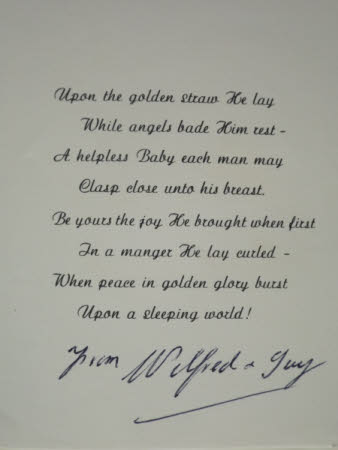 Upon the golden straw He lay
While angels bade Him rest -
A helpless Baby each man may
Clasp close unto his breast.
Be yours the joy He brought when first
In a manger He lay curled -
When peace in golden glory burst
Upon a sleeping world!
From Wilfred & Guy